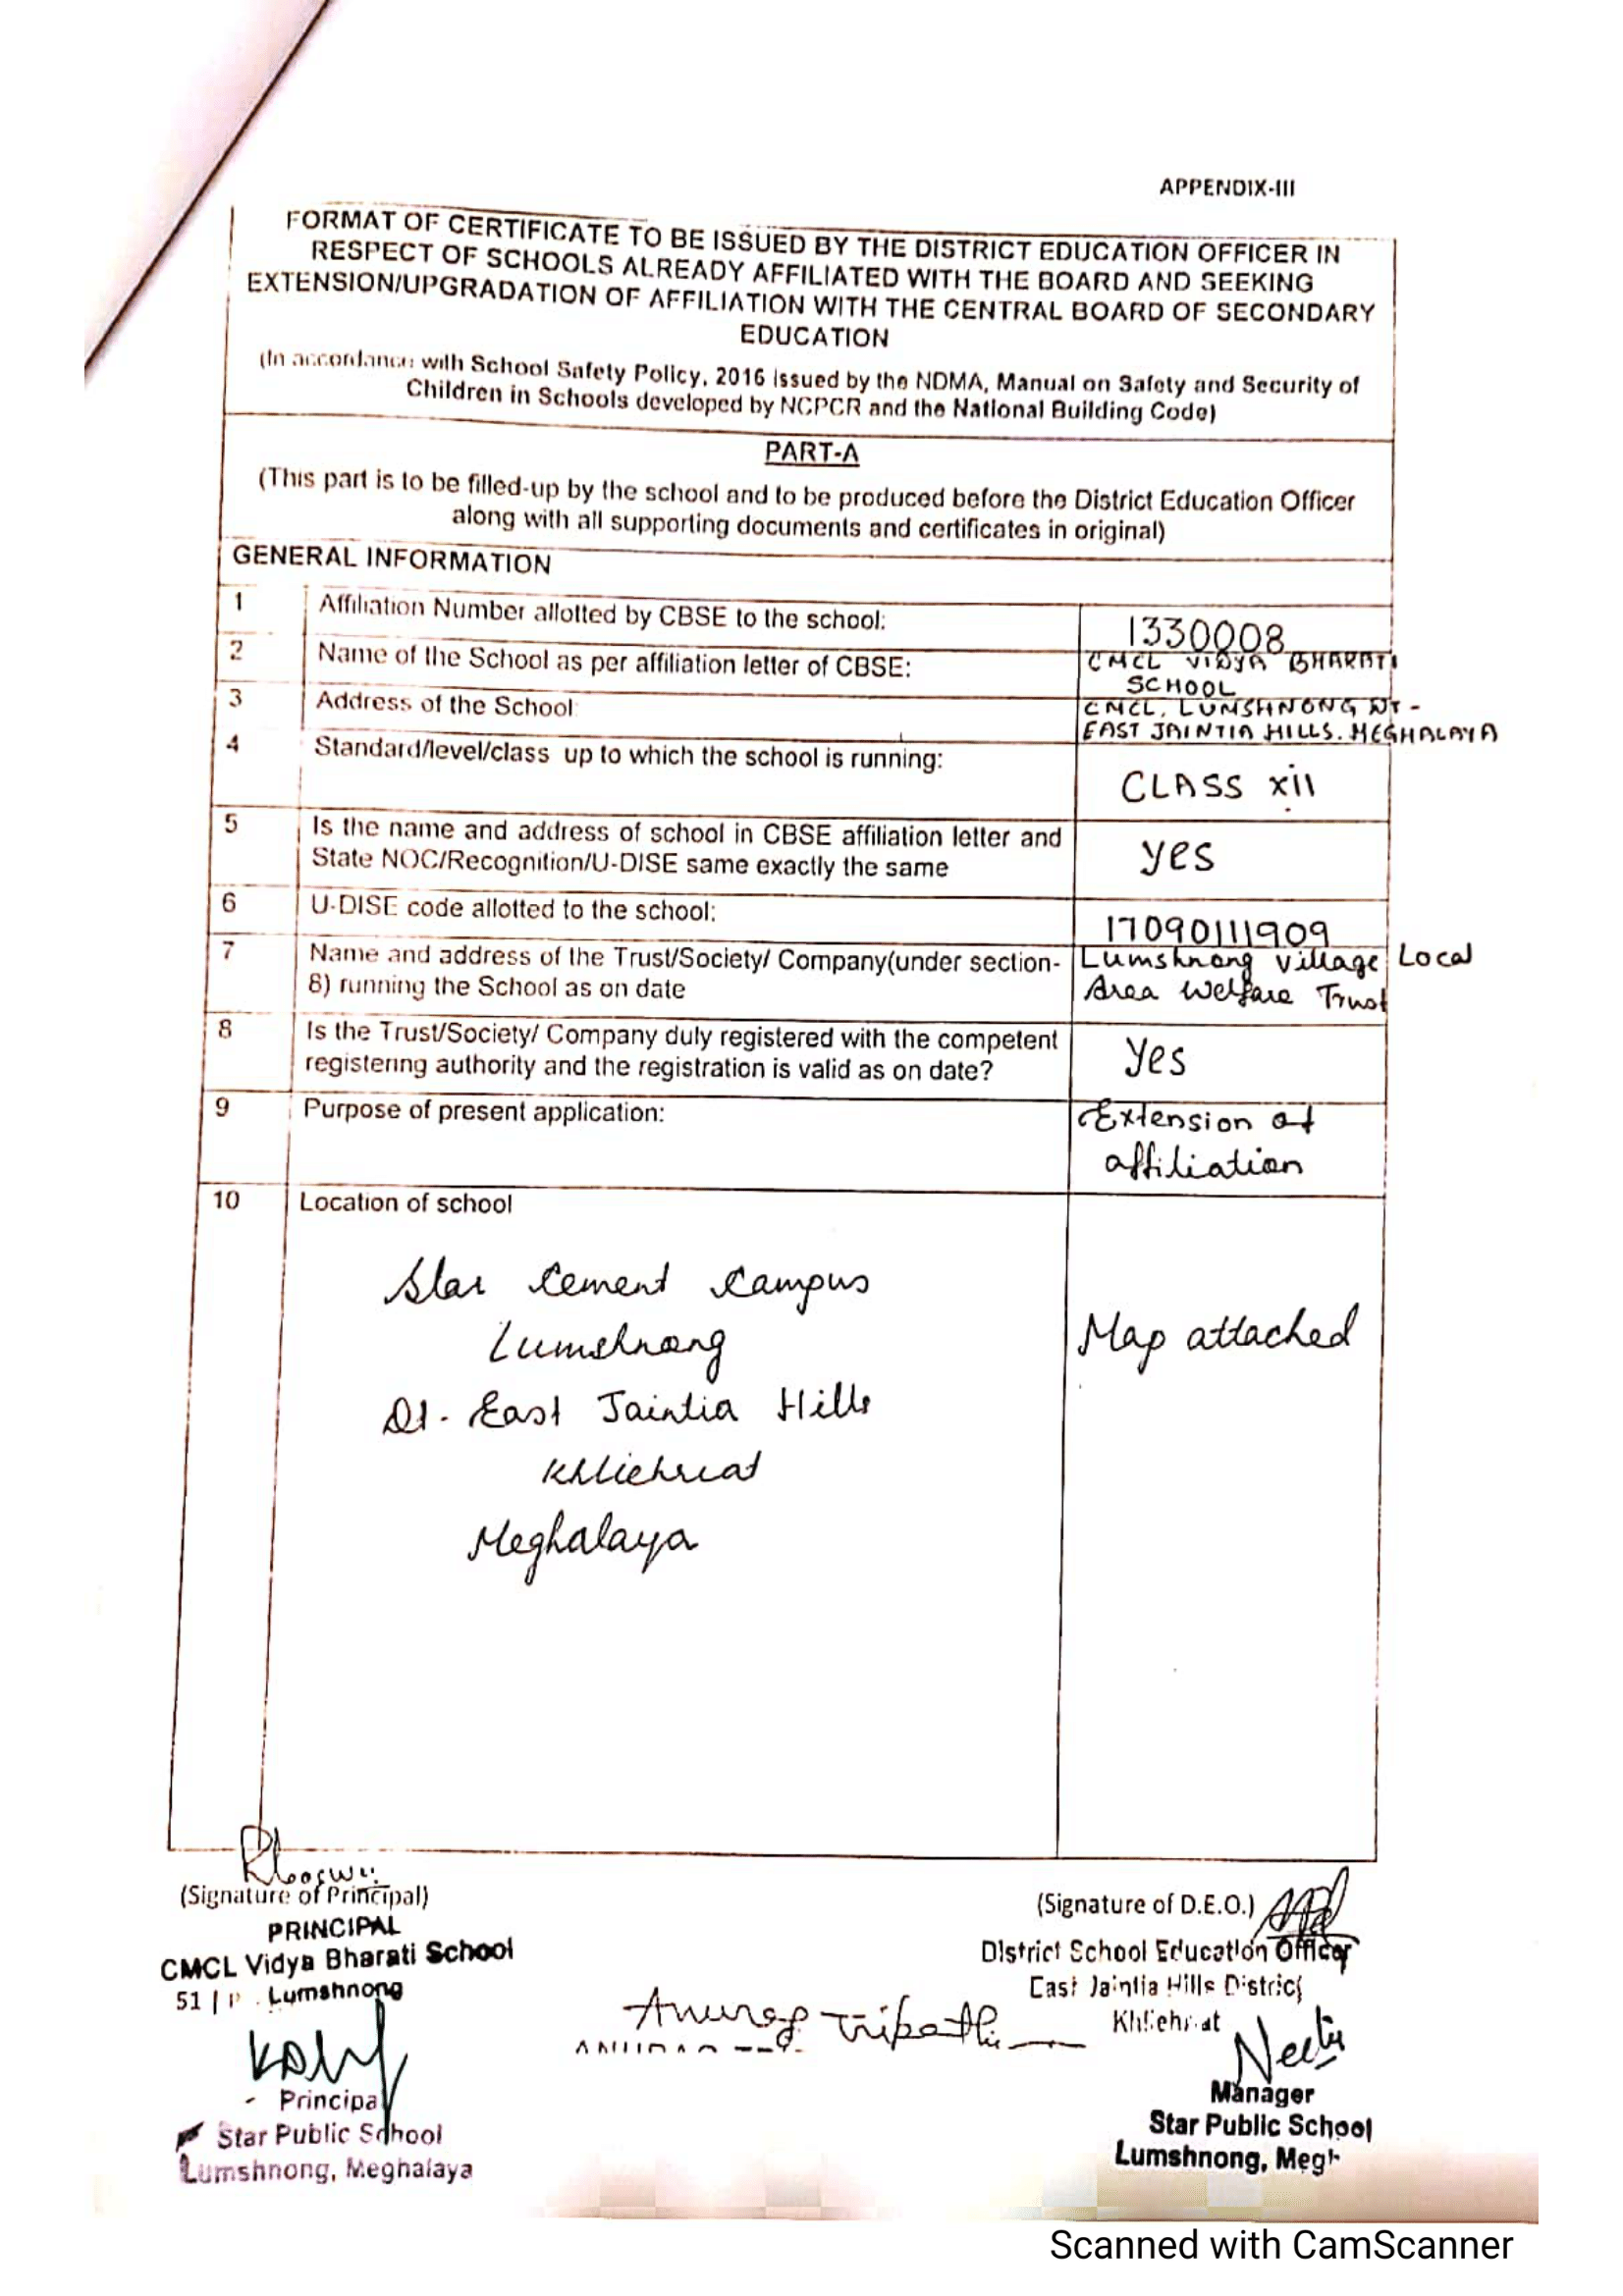 APPENDIX-III
FORMAT OF CERTIFICATE TO BE ISSUED BY THE DISTRICT EDUCATION OFFICER IN
RESPECT OF SCHOOLS ALREADY AFFILIATED WITH THE BOARD AND SEEKING
EXTENSION/UPGRADATION OF AFFILIATION WITH THE CENTRAL BOARD OF SECONDARY
EDUCATION
(In accordance with School Safety Policy, 2016 issued by the NDMA, Manual on Safety and Security of
Children in Schools developed by NCPCR and the National Building Code)
PART-A
(This part is to be filled-up by the school and to be produced before the District Education Officer
along with all supporting documents and certificates in original)
GENERAL INFORMATION
1 Affiliation Number allotted by CBSE to the school: 1330008
2 Name of the School as per affiliation letter of CBSE: CMCL VIDYA BHARATI
SCHOOL
3 Address of the School: CMCL, LUMSHNONG DT-
EAST JAINTIA HILLS. MEGHALAYA
4 Standard/level/class up to which the school is running:
CLASS XII
5 Is the name and address of school in CBSE affiliation letter and
State NOC/Recognition/U-DISE same exactly the same
yes
6 U-DISE code allotted to the school: 17090111909
7 Name and address of the Trust/Society/ Company(under section- Lumshnong village Local
8) running the School as on date Area Welfare Trust
8 Is the Trust/Society/ Company duly registered with the competent
registering authority and the registration is valid as on date?
Yes
9 Purpose of present application: Extension of
affiliation
10 Location of school
Star Cement Campus
Lumshnong
Dt. East Jaintia Hills
Khliehriat
Meghalaya
Map attached
(Signature of Principal)
PRINCIPAL
CMCL Vidya Bharati School
Lumshnong
(Signature of D.E.O.)
District School Education Officer
East Jaintia Hills District
Khliehriat
Anurag Tripathi
Principal
Star Public School
Lumshnong, Meghalaya
Neetu
Manager
Star Public School
Lumshnong, Megh
Scanned with CamScanner